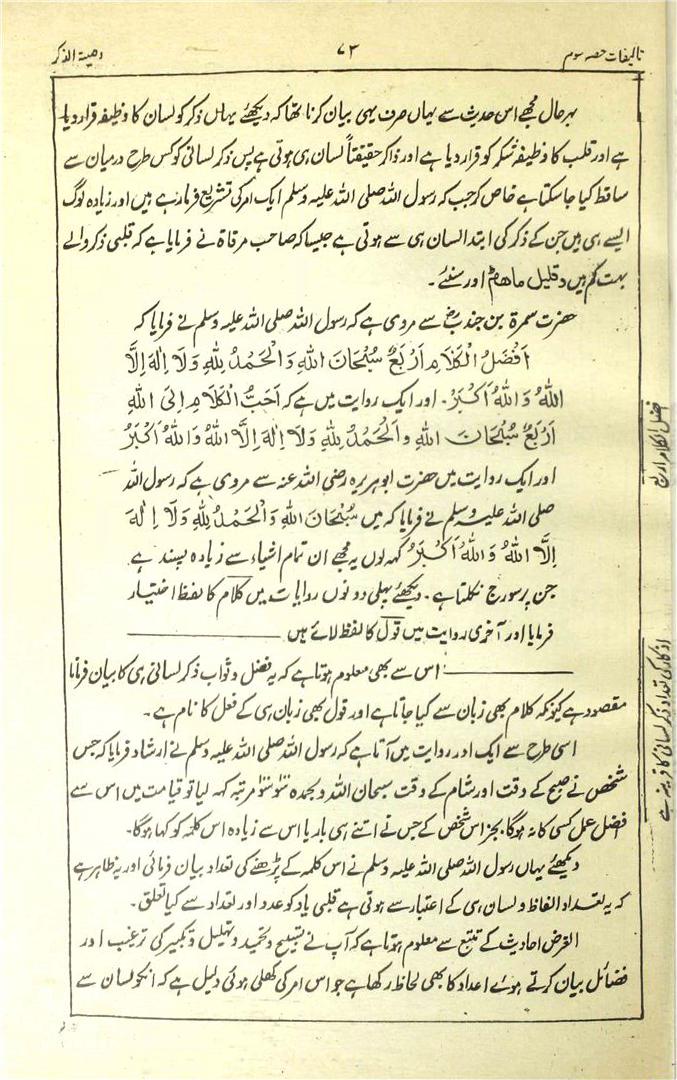 تالیفات حصہ سوم
۷۳
وصیۃ الذکر
بہر حال مجھے اس حدیث سے یہاں صرف یہی بیان کرنا تھا کہ دیکھئے یہاں ذکر کو لسان کا وظیفہ قرار دیا
ہے اور قلب کا وظیفہ شکر کو قرار دیا ہے اور ذاکر حقیقتاً لسان ہی ہوتی ہے پس ذکر لسانی کو کس طرح درمیان سے
ساقط کیا جا سکتا ہے خاص کر جب کہ رسول اللہ صلی اللہ علیہ وسلم ایک امر کی تشریع فرما رہے ہیں اور زیادہ لوگ
ایسے ہی ہیں جن کے ذکر کی ابتدا لسان ہی سے ہوتی ہے جیسا کہ صاحب مرقاۃ نے فرمایا ہے کہ قلبی ذکر والے
بہت کم ہیں وقلیل ماھم اور سنئے۔
حضرت سمرۃ بن جندبؓ سے مروی ہے کہ رسول اللہ صلی اللہ علیہ وسلم نے فرمایا کہ
اَفْضَلُ الْکَلَامِ اَرْبَعٌ سُبْحَانَ اللہِ وَالْحَمْدُ لِلہِ وَلَا اِلٰہَ اِلَّا
اللہُ وَاللہُ اَکْبَرُ۔ اور ایک روایت میں ہے کہ اَحَبُّ الْکَلَامِ اِلَی اللہِ
اَرْبَعٌ سُبْحَانَ اللہِ وَالْحَمْدُ لِلہِ وَلَا اِلٰہَ اِلَّا اللہُ وَاللہُ اَکْبَرُ
اور ایک روایت میں حضرت ابو ہریرہ رضی اللہ عنہ سے مروی ہے کہ رسول اللہ
صلی اللہ علیہ وسلم نے فرمایا کہ میں سُبْحَانَ اللہِ وَالْحَمْدُ لِلہِ وَلَا اِلٰہَ
اِلَّا اللہُ وَاللہُ اَکْبَرُ کہہ لوں یہ مجھے ان تمام اشیاء سے زیادہ پسند ہے
جن پر سورج نکلتا ہے۔ دیکھئے پہلی دونوں روایات میں کلام کا لفظ اختیار
فرمایا اور آخری روایت میں قول کا لفظ لائے ہیں
اس سے بھی معلوم ہوتا ہے کہ یہ فضل و ثواب ذکر لسانی ہی کا بیان فرمانا
مقصود ہے کیونکہ کلام بھی زبان سے کیا جاتا ہے اور قول بھی زبان ہی کے فعل کا نام ہے۔
اسی طرح سے ایک اور روایت میں آتا ہے کہ رسول اللہ صلی اللہ علیہ وسلم نے ارشاد فرمایا کہ جس
شخص نے صبح کے وقت اور شام کے وقت سبحان اللہ وبحمدہ سو سو مرتبہ کہہ لیا تو قیامت میں اس سے
افضل عمل کسی کا نہ ہوگا۔ بجز اس شخص کے جس نے اتنے ہی بار یا اس سے زیادہ اس کلمہ کو کہا ہوگا۔
دیکھئے یہاں رسول اللہ صلی اللہ علیہ وسلم نے اس کلمہ کے پڑھنے کی تعداد بیان فرمائی اور یہ ظاہر ہے
کہ یہ تعداد الفاظ و لسان ہی کے اعتبار سے ہوتی ہے قلبی یاد کو عدد اور تعداد سے کیا تعلق۔
الغرض احادیث کے تتبع سے معلوم ہوتا ہے کہ آپ نے تسبیح و تحمید و تہلیل و تکبیر کی ترغیب اور
فضائل بیان کرتے ہوئے اعداد کا بھی لحاظ رکھا ہے جو اس امر کی کھلی ہوئی دلیل ہے کہ انکو لسان سے
افضل الکلام اربع
اذکار کی تعداد ذکر لسانی کا قرینہ ہے